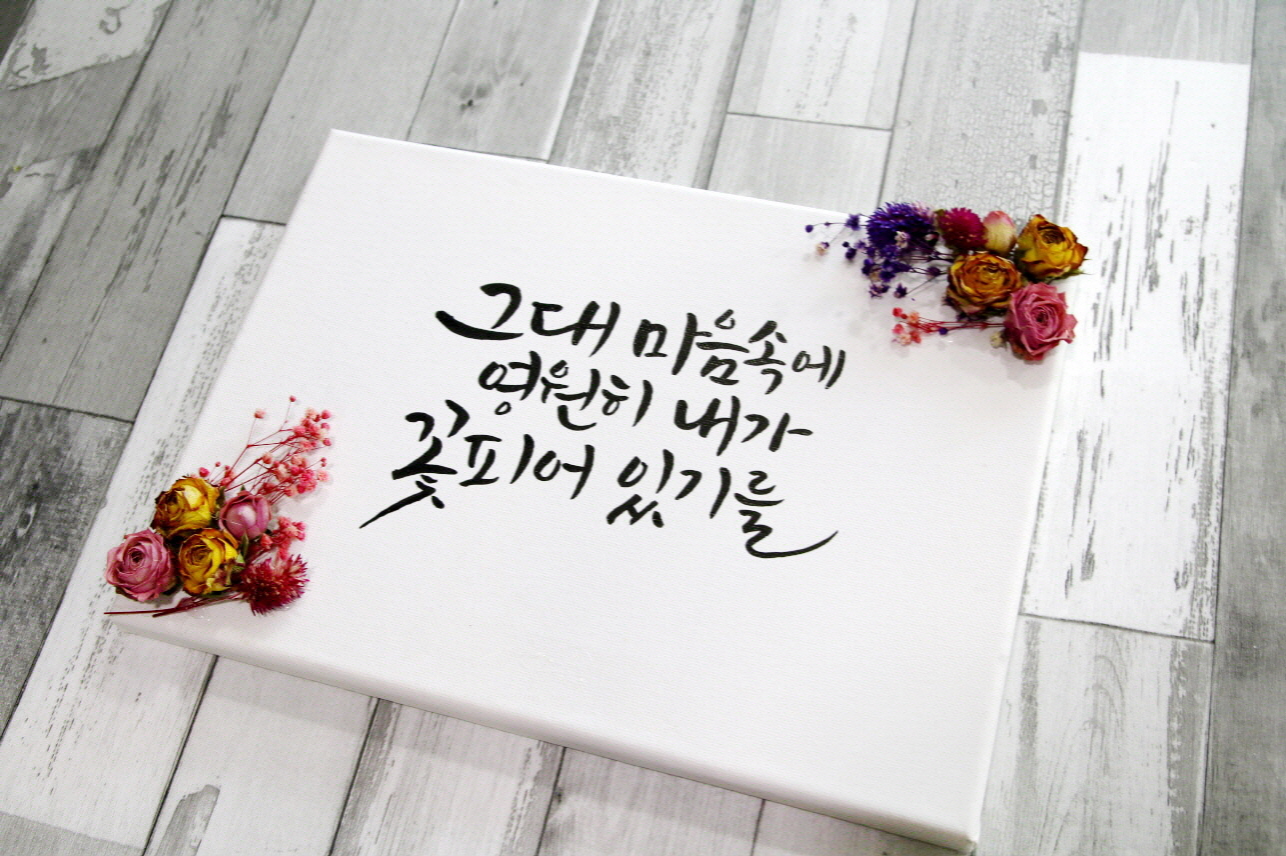 그대 마음속에
영원히 내가
꽃피어 있기를